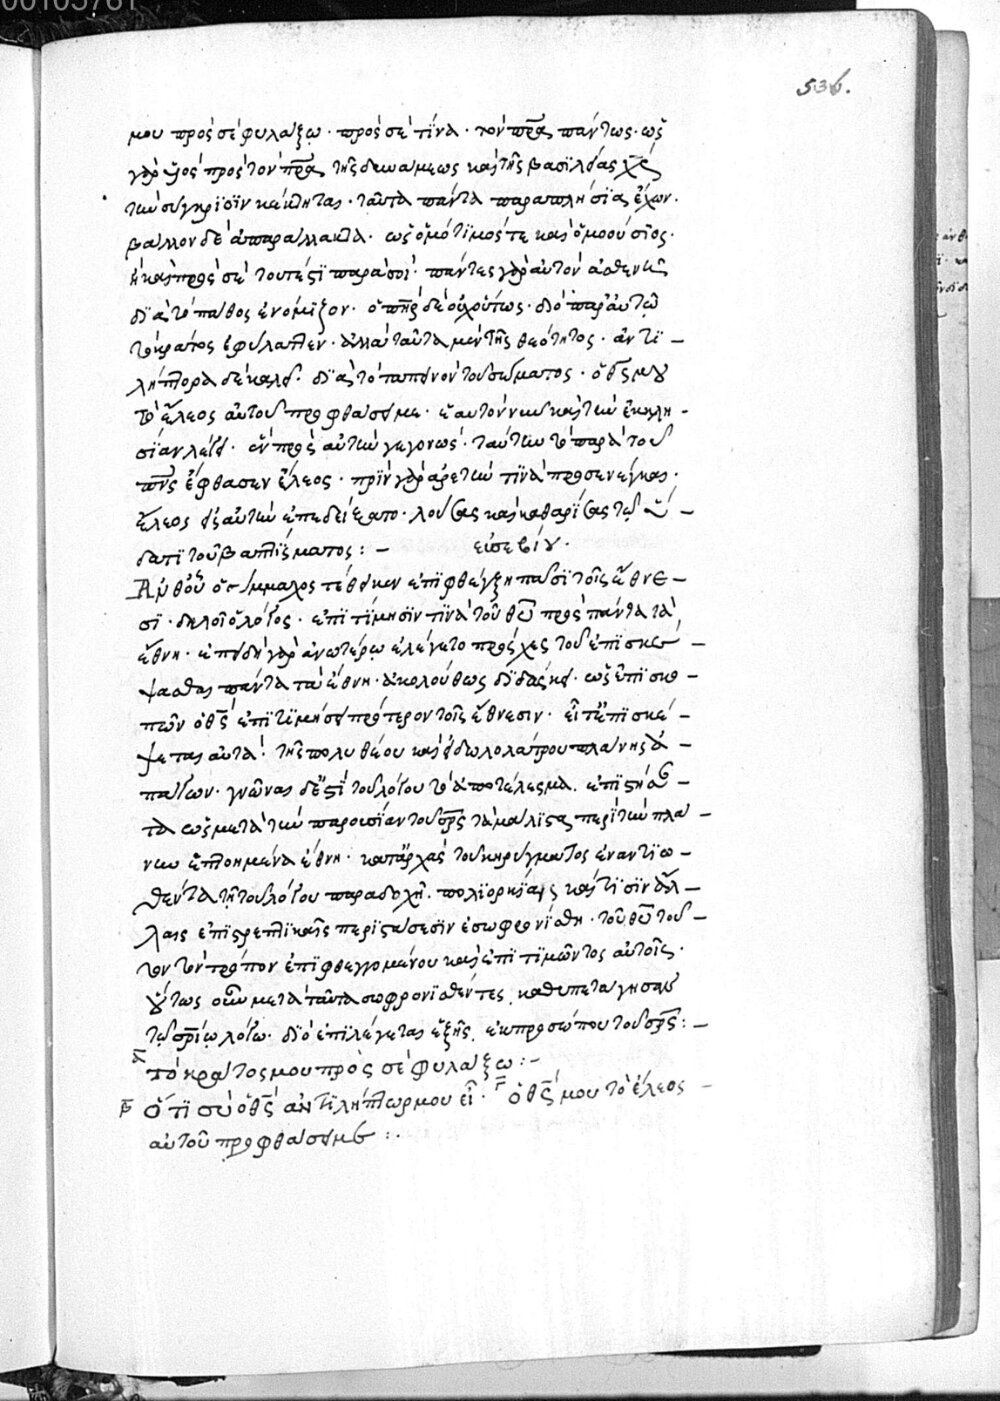 536.
μου πρὸς σὲ φυλάξω · πρὸς σὲ τίνα · τὸν πρ̅α πάντως · ὡς
γὰρ πρὸς τὸν πρ̅α τῆς δυνάμεως καὶ τῆς βασιλείας
τὴν σύγκρισιν κέκληται · ταῦτα πάντα παραπλησίας ἔχων ·
μᾶλλον δὲ ἀπαράλλακτα · ὡς ὁμότιμός τε καὶ ὁμοούσιος ·
ἢ καὶ πρὸς σὲ τουτέστι παρὰ σοί · πάντες γὰρ αὐτὸν ἀσθενεῖν
διὰ τὸ πάθος ἐνόμιζον · ὁ δὲ οὐχ οὕτως · διὸ παρ' αὐτῶ
τὸ κράτος ἐφύλαττεν · ἀλλὰ ταῦτα μὲν τῆς θεότητος · ἀντι –
λήπτορα δὲ καλεῖ · διὰ τὸ ταπεινὸν τοῦ σώματος · ὁ θς̅ μου
τὸ ἔλεος αὐτοῦ προφθάσει με · ἑαυτὸν νῦν καὶ τὴν ἐκκλη –
σίαν λέγει · ἓν πρὸς αὐτὴν γεγονώς · ταύτην τὸ παρὰ τοῦ
πν̅ς ἔφθασεν ἔλεος · πρὶν γὰρ ἀρετήν τινὰ προσενέγκαι ·
ἔλεος εἰς αὐτὴν ἐπεδείξατο · λούσας καὶ καθαρίσας τῶ ὕ –
δατι τοῦ βαπτίσματος : – εὐσεβίου ·
Ἀνθ' οὗ ὁ σύμμαχος τέθεικεν ἐπιφθέγξη πᾶσι τοῖς ἔθνε –
σι · δηλοῖ ὁ λόγος · ἐπιτίμησιν τινὰ τοῦ θῦ̅ πρὸς πάντα τὰ
ἔθνη · ἐπειδὴ γὰρ ἀνωτέρω ἐλέγετο πρόσχες τοῦ ἐπισκέ –
ψασθαι πάντα τὰ ἔθνη · ἀκολούθως διδάσκει · ὡς ἐπισκο –
πῶν ὁ θς̅ ἐπιτιμήσει πρότερον τοῖς ἔθνεσιν · εἶτ' ἐπισκέ –
ψεται αὐτὰ · τῆς πολυθέου καὶ εἰδωλολάτρου πλάνης ἀ –
παγων · γνῶναι δ' ἔστι τοῦ λόγου τὸ ἀποτέλεσμα · ἐπιστήσαν
τα ὡς μετὰ τὴν παρουσίαν τοῦ σρ̅ς τὰ μάλιστα περὶ τὴν πλά –
νην ἐπτοημένα ἔθνη · κατ' ἀρχὰς τοῦ κηρύγματος ἐναντιω –
θέντα τῆ τοῦ λόγου παραδοχῆ · πολιορκίαις καὶ τισὶν ἄλ –
λαις ἐπιστρεπτικαῖς περιστάσεσιν ἐσωφρονίσθη · τοῦ θῦ̅ τοῦ –
τον τὸν τρόπον ἐπιφθεγγομένου καὶ ἐπιτιμῶντος αὐτοῖς ·
οὕτως οὖν μετὰ ταῦτα σωφρονισθέντες καθυπετάγησαν
τῶ σρ̅ίω λόγω · διὸ ἐπιλέγεται ἑξῆς ἐκ προσώπου τοῦ σρ̅ς : –
α̅ Τὸ κράτος μου πρὸς σὲ φυλάξω : –
β̅ Ὅτι σὺ ὁ θς̅ ἀντιλήπτωρ μου εἶ · γ̅ ὁ θς̅ μου τὸ ἔλεος –
αὐτοῦ προφθάσει με : ·